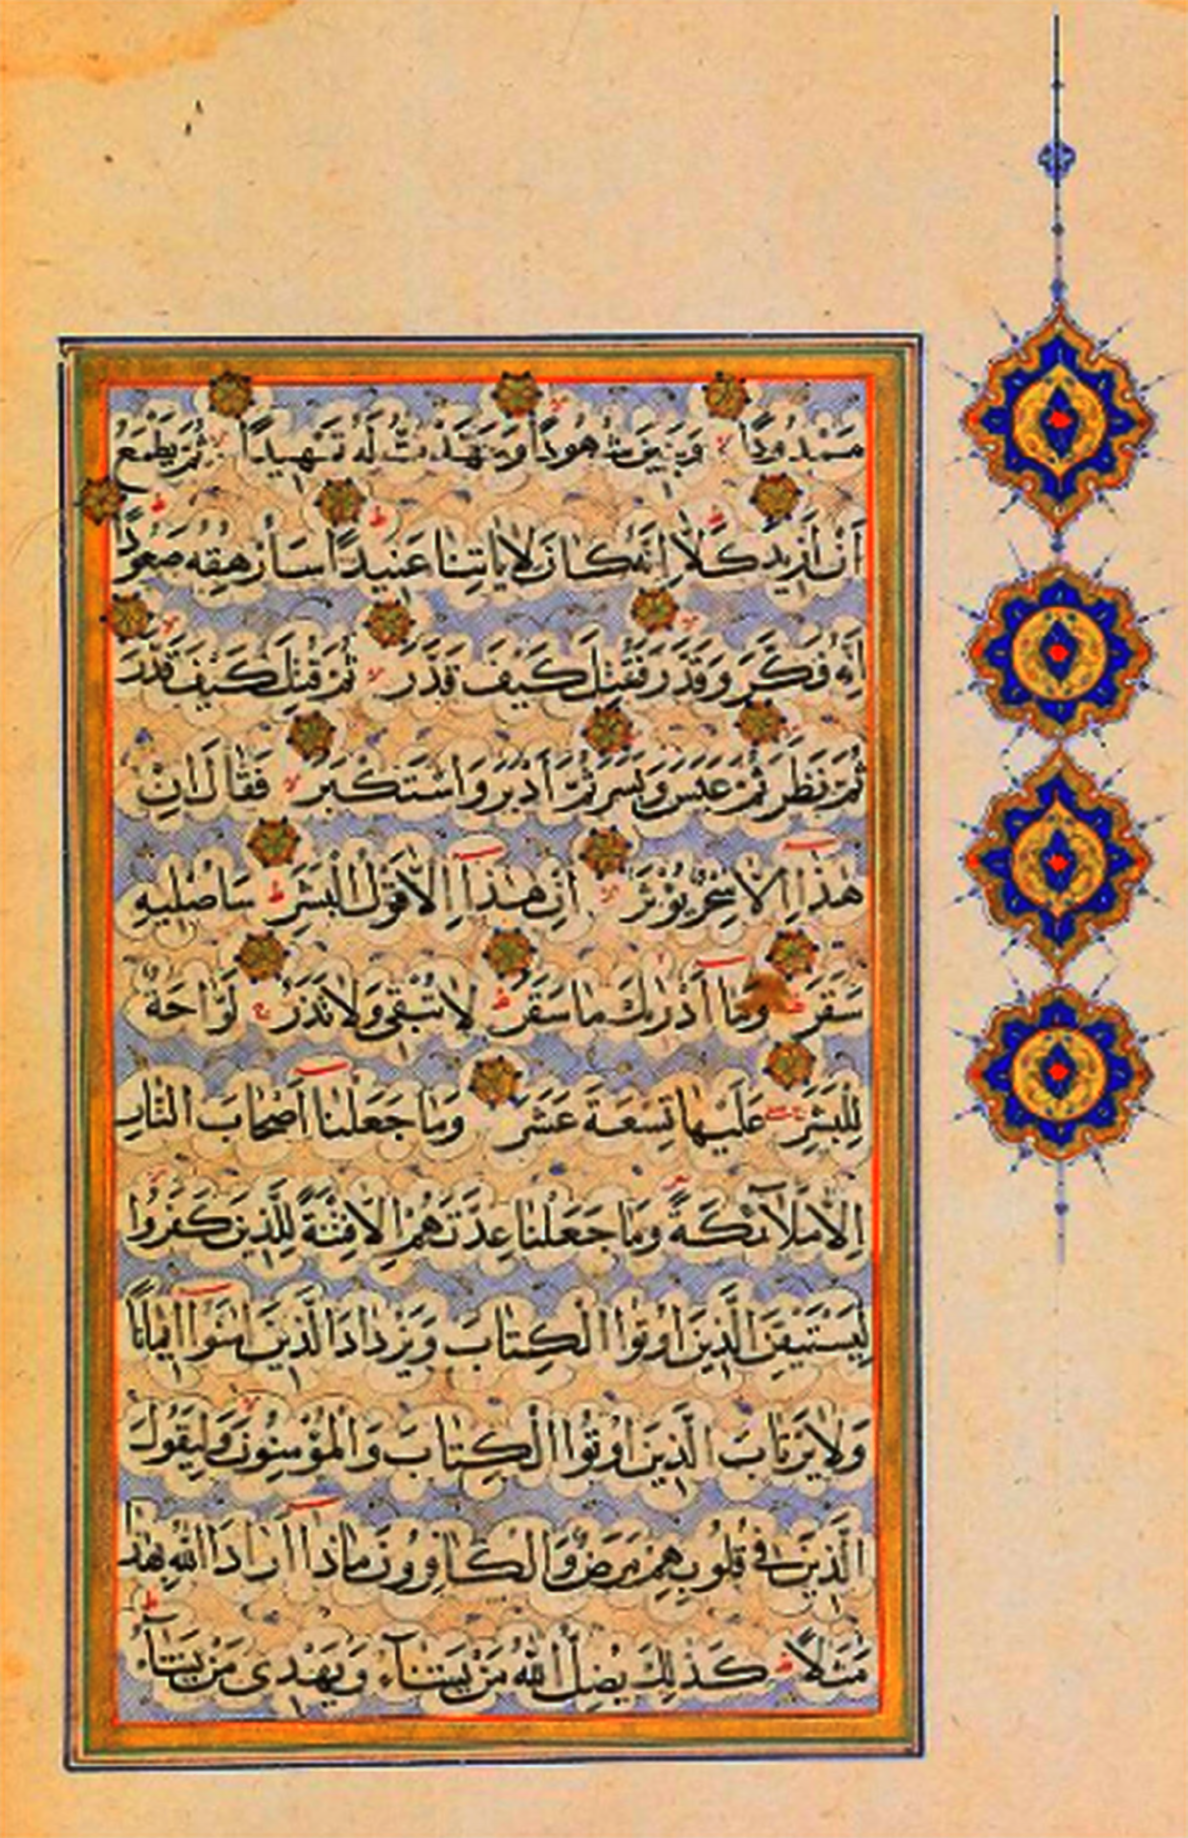 مَمْدُودًا وَبَنِينَ شُهُودًا وَمَهَّدْتُ لَهُ تَمْهِيدًا ثُمَّ يَطْمَعُ
اَنْ اَزِيدَ كَلَّا اِنَّهُ كَانَ لِاٰيَاتِنَا عَنِيدًا سَاُرْهِقُهُ صَعُودًا
اِنَّهُ فَكَّرَ وَقَدَّرَ فَقُتِلَ كَيْفَ قَدَّرَ ثُمَّ قُتِلَ كَيْفَ قَدَّرَ
ثُمَّ نَظَرَ ثُمَّ عَبَسَ وَبَسَرَ ثُمَّ اَدْبَرَ وَاسْتَكْبَرَ فَقَالَ اِنْ
هٰذَا اِلَّا سِحْرٌ يُؤْثَرُ اِنْ هٰذَا اِلَّا قَوْلُ الْبَشَرِ سَاُصْلِيهِ
سَقَرَ وَمَا اَدْرٰيكَ مَا سَقَرُ لَا تُبْقِي وَلَا تَذَرُ لَوَّاحَةٌ
لِلْبَشَرِ عَلَيْهَا تِسْعَةَ عَشَرَ وَمَا جَعَلْنَا اَصْحَابَ النَّارِ
اِلَّا مَلَائِكَةً وَمَا جَعَلْنَا عِدَّتَهُمْ اِلَّا فِتْنَةً لِلَّذِينَ كَفَرُوا
لِيَسْتَيْقِنَ الَّذِينَ اُوتُوا الْكِتَابَ وَيَزْدَادَ الَّذِينَ اٰمَنُوا اِيمَانًا
وَلَا يَرْتَابَ الَّذِينَ اُوتُوا الْكِتَابَ وَالْمُؤْمِنُونَ وَلِيَقُولَ
الَّذِينَ فِي قُلُوبِهِمْ مَرَضٌ وَالْكَافِرُونَ مَاذَا اَرَادَ اللّٰهُ بِهٰذَا
مَثَلًا كَذٰلِكَ يُضِلُّ اللّٰهُ مَنْ يَشَاءُ وَيَهْدِي مَنْ يَشَاءُ